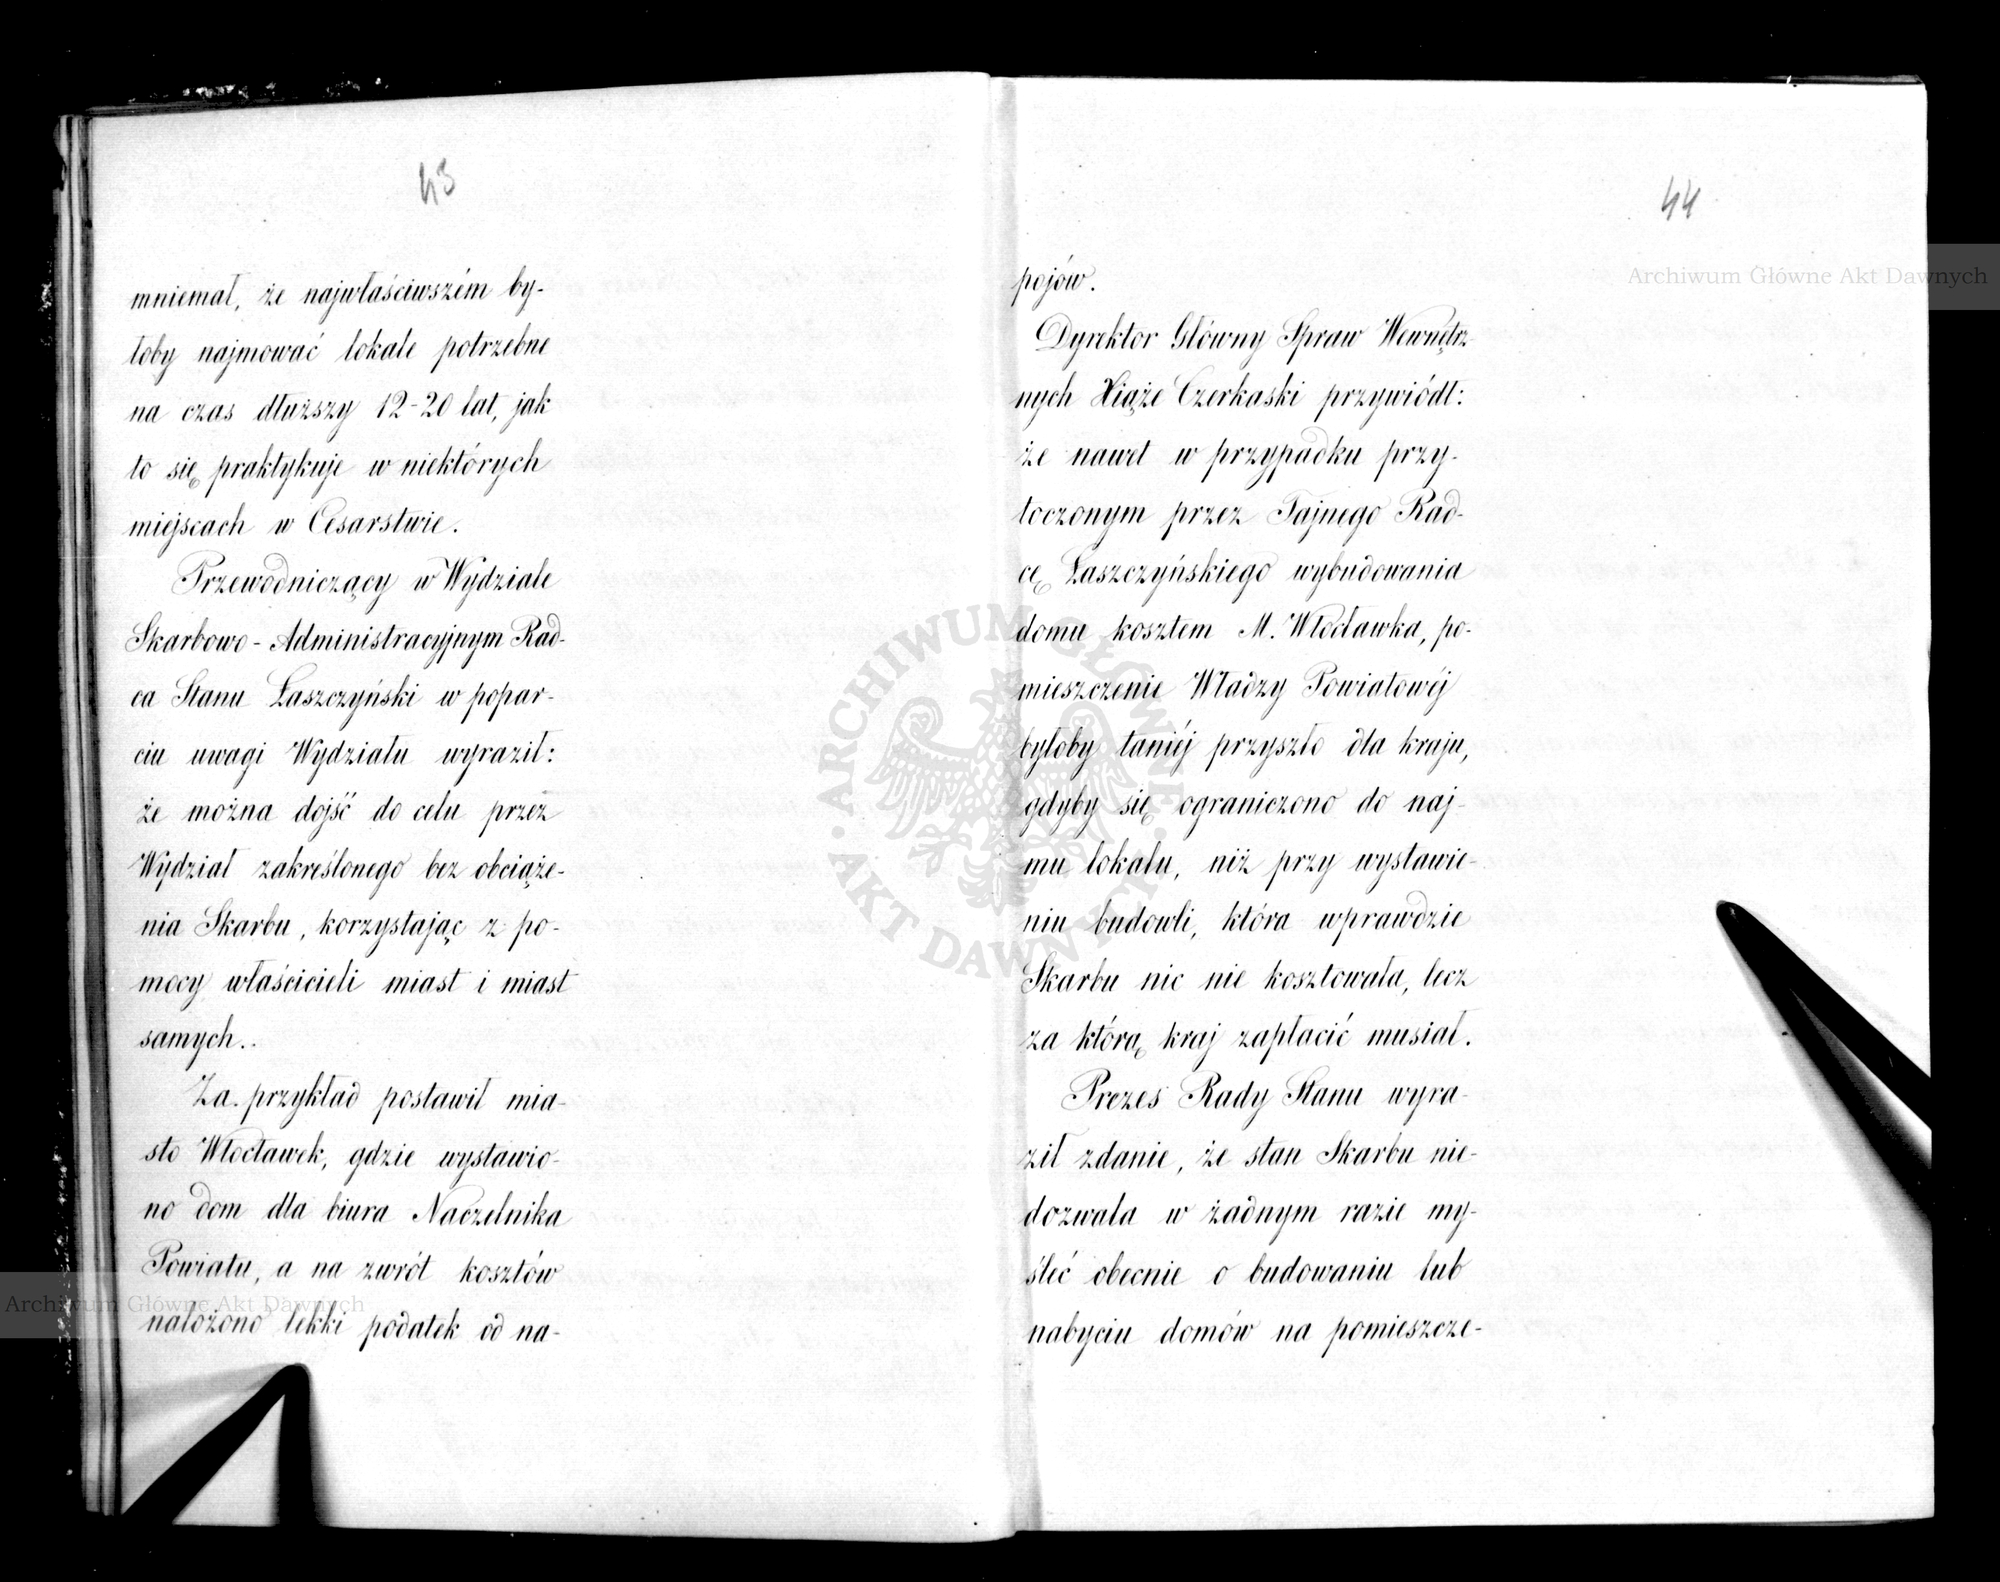 43
mniemał, że najwłaściwszém by-
łoby najmować lokale potrzebne
na czas dłuższy 12-20 lat, jak
to się praktykuje w niektórych
miejscach w Cesarstwie.
Przewodniczący w Wydziale
Skarbowo-Administracyjnym Rad-
ca Stanu Łaszczyński w popar-
ciu uwagi Wydziału wyraził:
że można dojść do celu przez
Wydział zakreślonego bez obciąże-
nia Skarbu, korzystając z po-
mocy właścicieli miast i miast
samych..
Za przykład postawił mia-
sto Włocławek, gdzie wystawio-
no dom dla biura Naczelnika
Powiatu, a na zwrót kosztów
nałożono lekki podatek od na-
44
pojów.
Dyrektor Główny Spraw Wewnętrz-
nych Xiąże Czerkaski przywiódł:
że nawet w przypadku przy-
toczonym przez Tajnego Rad-
cę Łaszczyńskiego wybudowania
domu kosztem M. Włocławka, po-
mieszczenie Władzy Powiatowéj
byłoby taniéj przyszło dla kraju,
gdyby się ograniczono do naj-
mu lokalu, niż przy wystawie-
niu budowli, która wprawdzie
Skarbu nic nie kosztowała, lecz
za którą kraj zapłacić musiał.
Prezes Rady Stanu wyra-
ził zdanie, że stan Skarbu nie-
dozwala w żadnym razie my-
śleć obecnie o budowaniu lub
nabyciu domów na pomieszcze-
Archiwum Główne Akt Dawnych
Archiwum Główne Akt Dawnych
ARCHIWUM GŁÓWNE AKT DAWNYCH